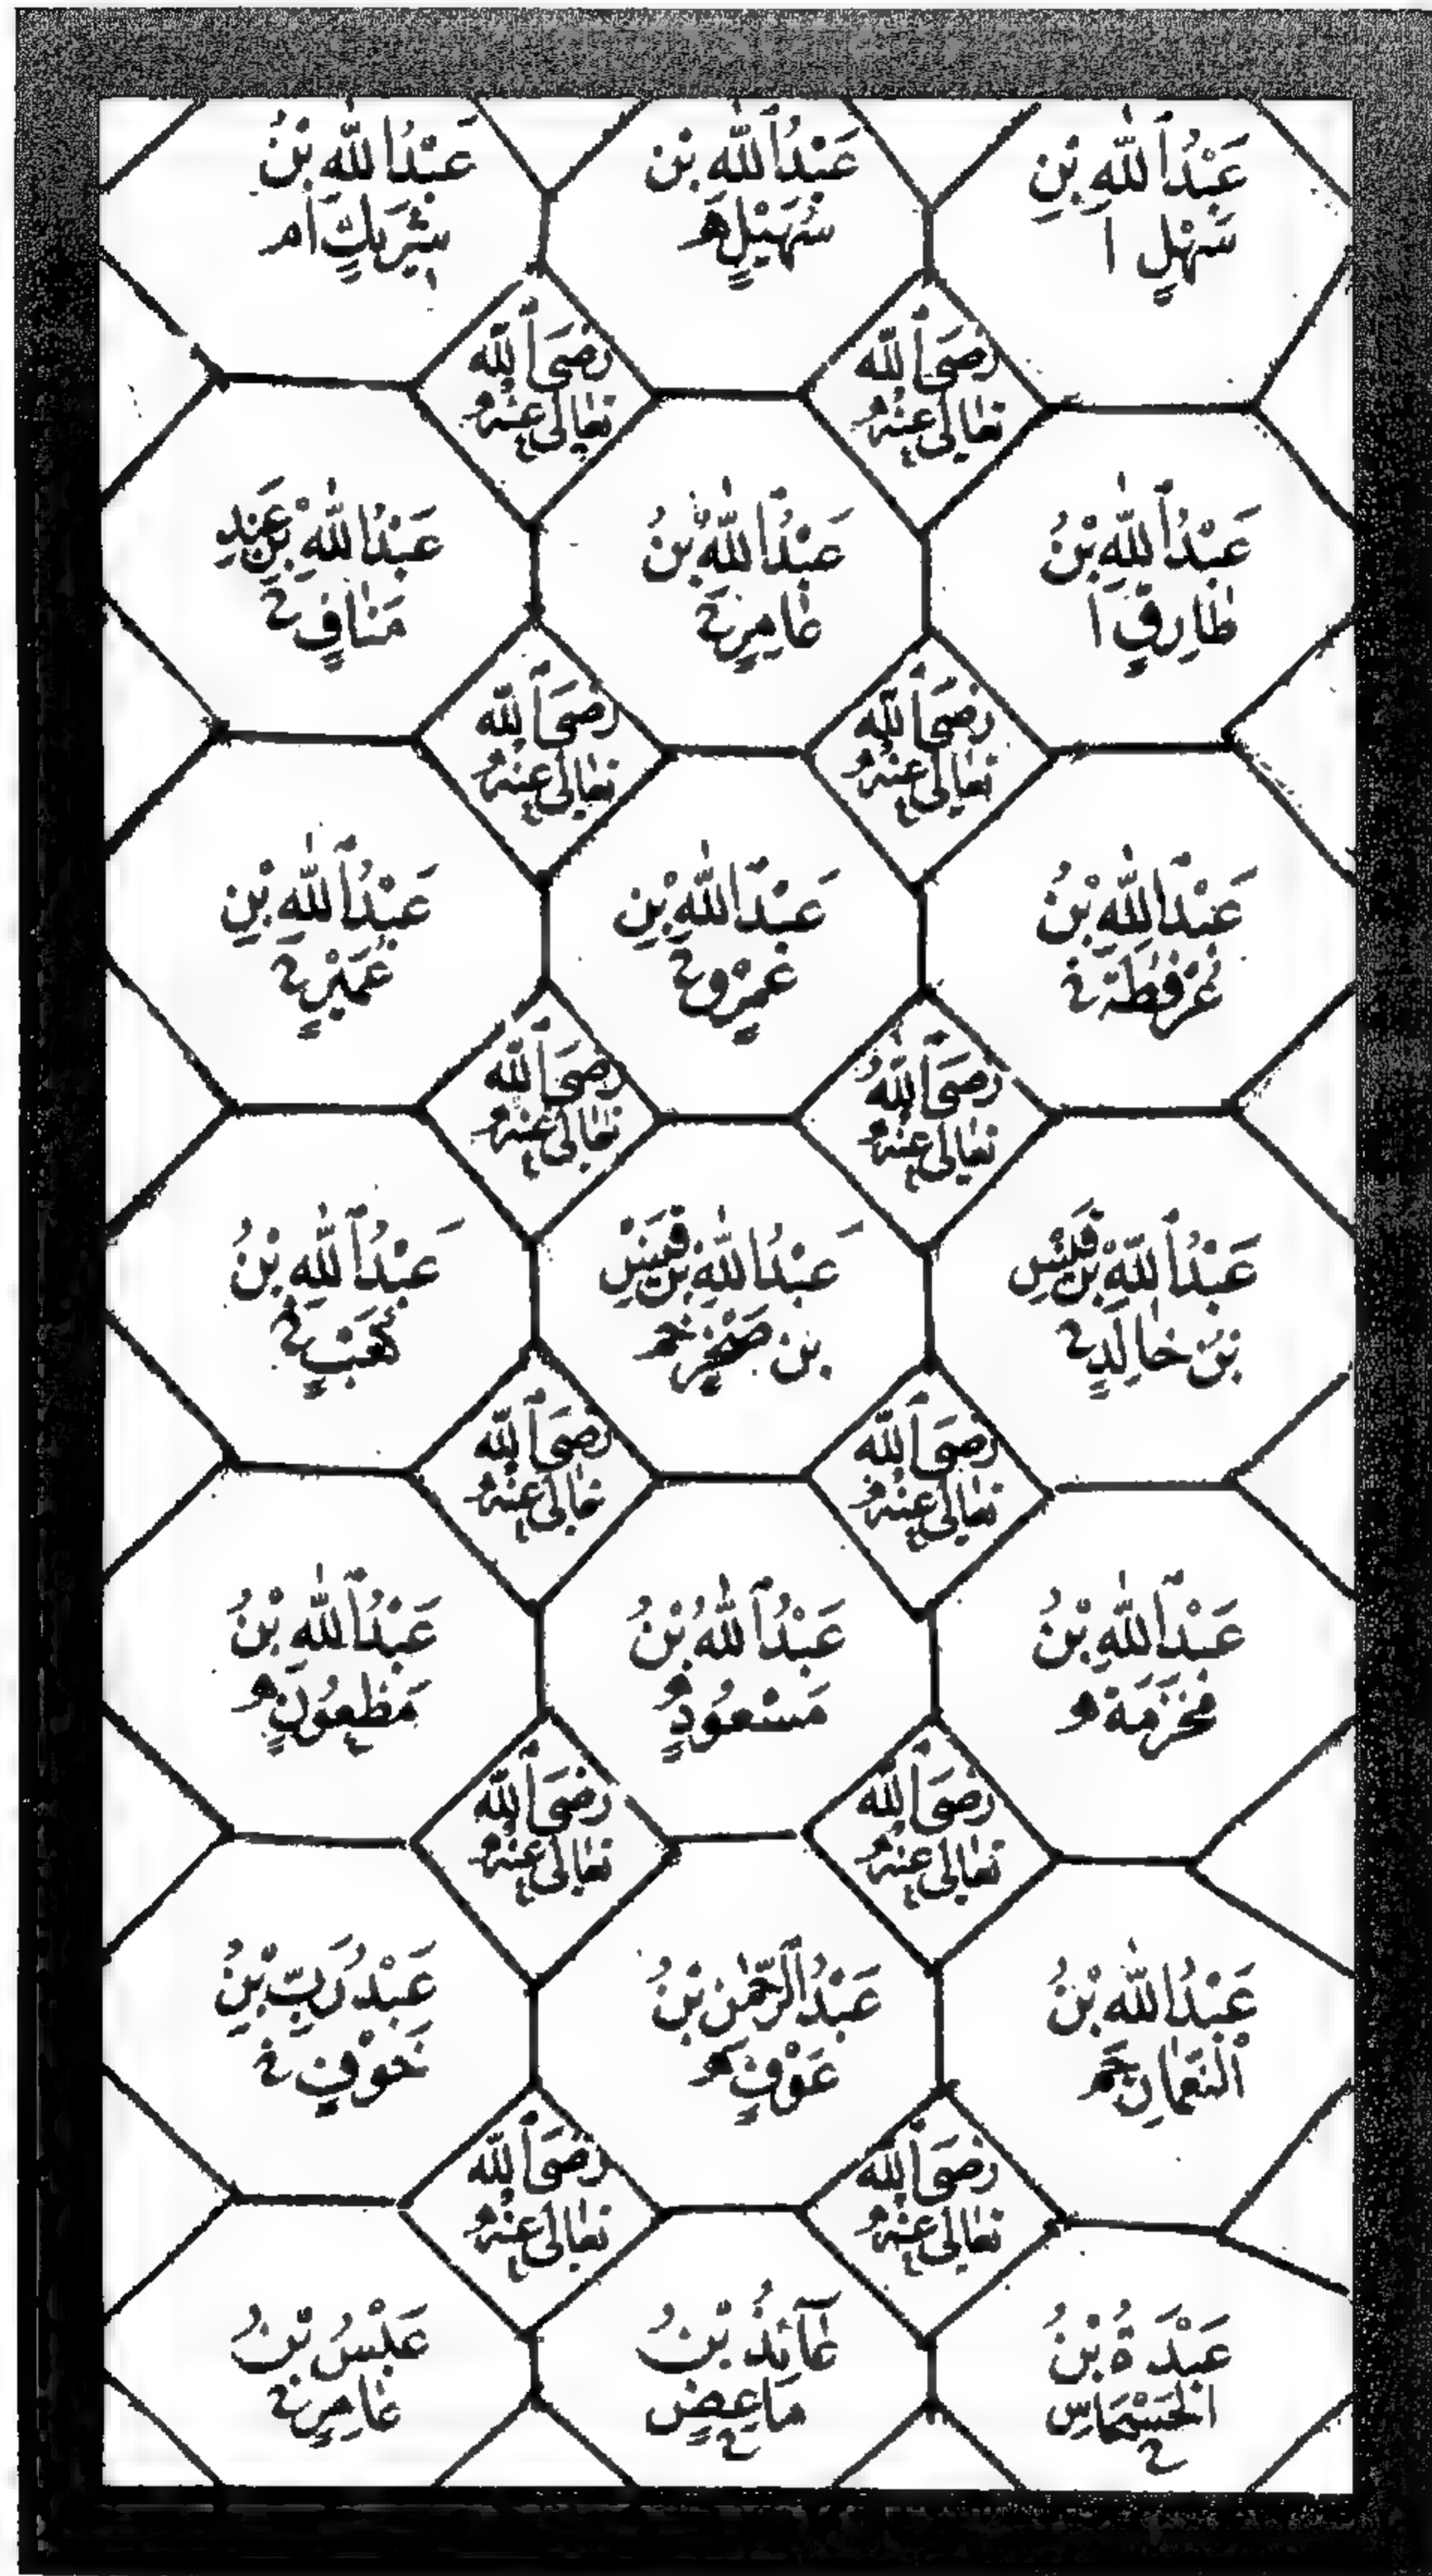 عَبْدُ ٱللّٰهِ بْنِ
سَهْلٍ ا
عَبْدُ ٱللّٰهِ بْن
سُهَيْلٍ مـ
عَبْدُ ٱللّٰهِ بْنُ
شَرِيكٍ ا مـ
رَضِىَ ٱللّٰه
تَعَالٰى عَنْهُ
رَضِىَ ٱللّٰه
تَعَالٰى عَنْهُ
عَبْدُ ٱللّٰهِ بْنُ
طَارِقٍ ا
عَبْدُ ٱللّٰهِ بْنُ
عَامِرٍ خ
عَبْدُ ٱللّٰهِ بْنِ عَبْدِ
مَنَافٍ خ
رَضِىَ ٱللّٰه
تَعَالٰى عَنْهُ
رَضِىَ ٱللّٰه
تَعَالٰى عَنْهُ
عَبْدُ ٱللّٰهِ بْنُ
عُرْفُطَةَ خ
عَبْدُ ٱللّٰهِ بْنِ
عَمْرٍو خ
عَبْدُ ٱللّٰهِ بْنِ
عُمَيْرٍ خ
رَضِىَ ٱللّٰهُ
تَعَالٰى عَنْهُ
رَضِىَ ٱللّٰه
تَعَالٰى عَنْهُ
عَبْدُ ٱللّٰهِ بْنُ قَيْسِ
بْنِ خَالِدٍ خ
عَبْدُ ٱللّٰهِ بْنُ قَيْسِ
بْن صَخْرٍ خ مـ
عَبْدُ ٱللّٰهِ بْنُ
كَعْبٍ خ
رَضِىَ ٱللّٰه
تَعَالٰى عَنْهُ
رَضِىَ ٱللّٰه
تَعَالٰى عَنْهُ
عَبْدُ ٱللّٰهِ بْنُ
مَخْرَمَةَ مـ
عَبْدُ ٱللّٰهِ بْنُ
مَسْعُودٍ مـ
عَبْدُ ٱللّٰهِ بْنُ
مَظْعُونٍ مـ
رَضِىَ ٱللّٰه
تَعَالٰى عَنْهُ
رَضِىَ ٱللّٰه
تَعَالٰى عَنْهُ
عَبْدُ ٱللّٰهِ بْنُ
ٱلنُّعْمَانِ خ مـ
عَبْدُ ٱلرَّحْمٰنِ بْنُ
عَوْفٍ مـ
عَبْدُ رَبِّ بْنِ
حَوْفٍ خ
رَضِىَ ٱللّٰه
تَعَالٰى عَنْهُ
رَضِىَ ٱللّٰه
تَعَالٰى عَنْهُ
عَبْدَةُ بْنُ
الْحَسْحَاسِ
خ
عَائِذُ بْنُ
مَاعِصٍ
خ
عَبْسُ بْنُ
عَامِرٍ خ